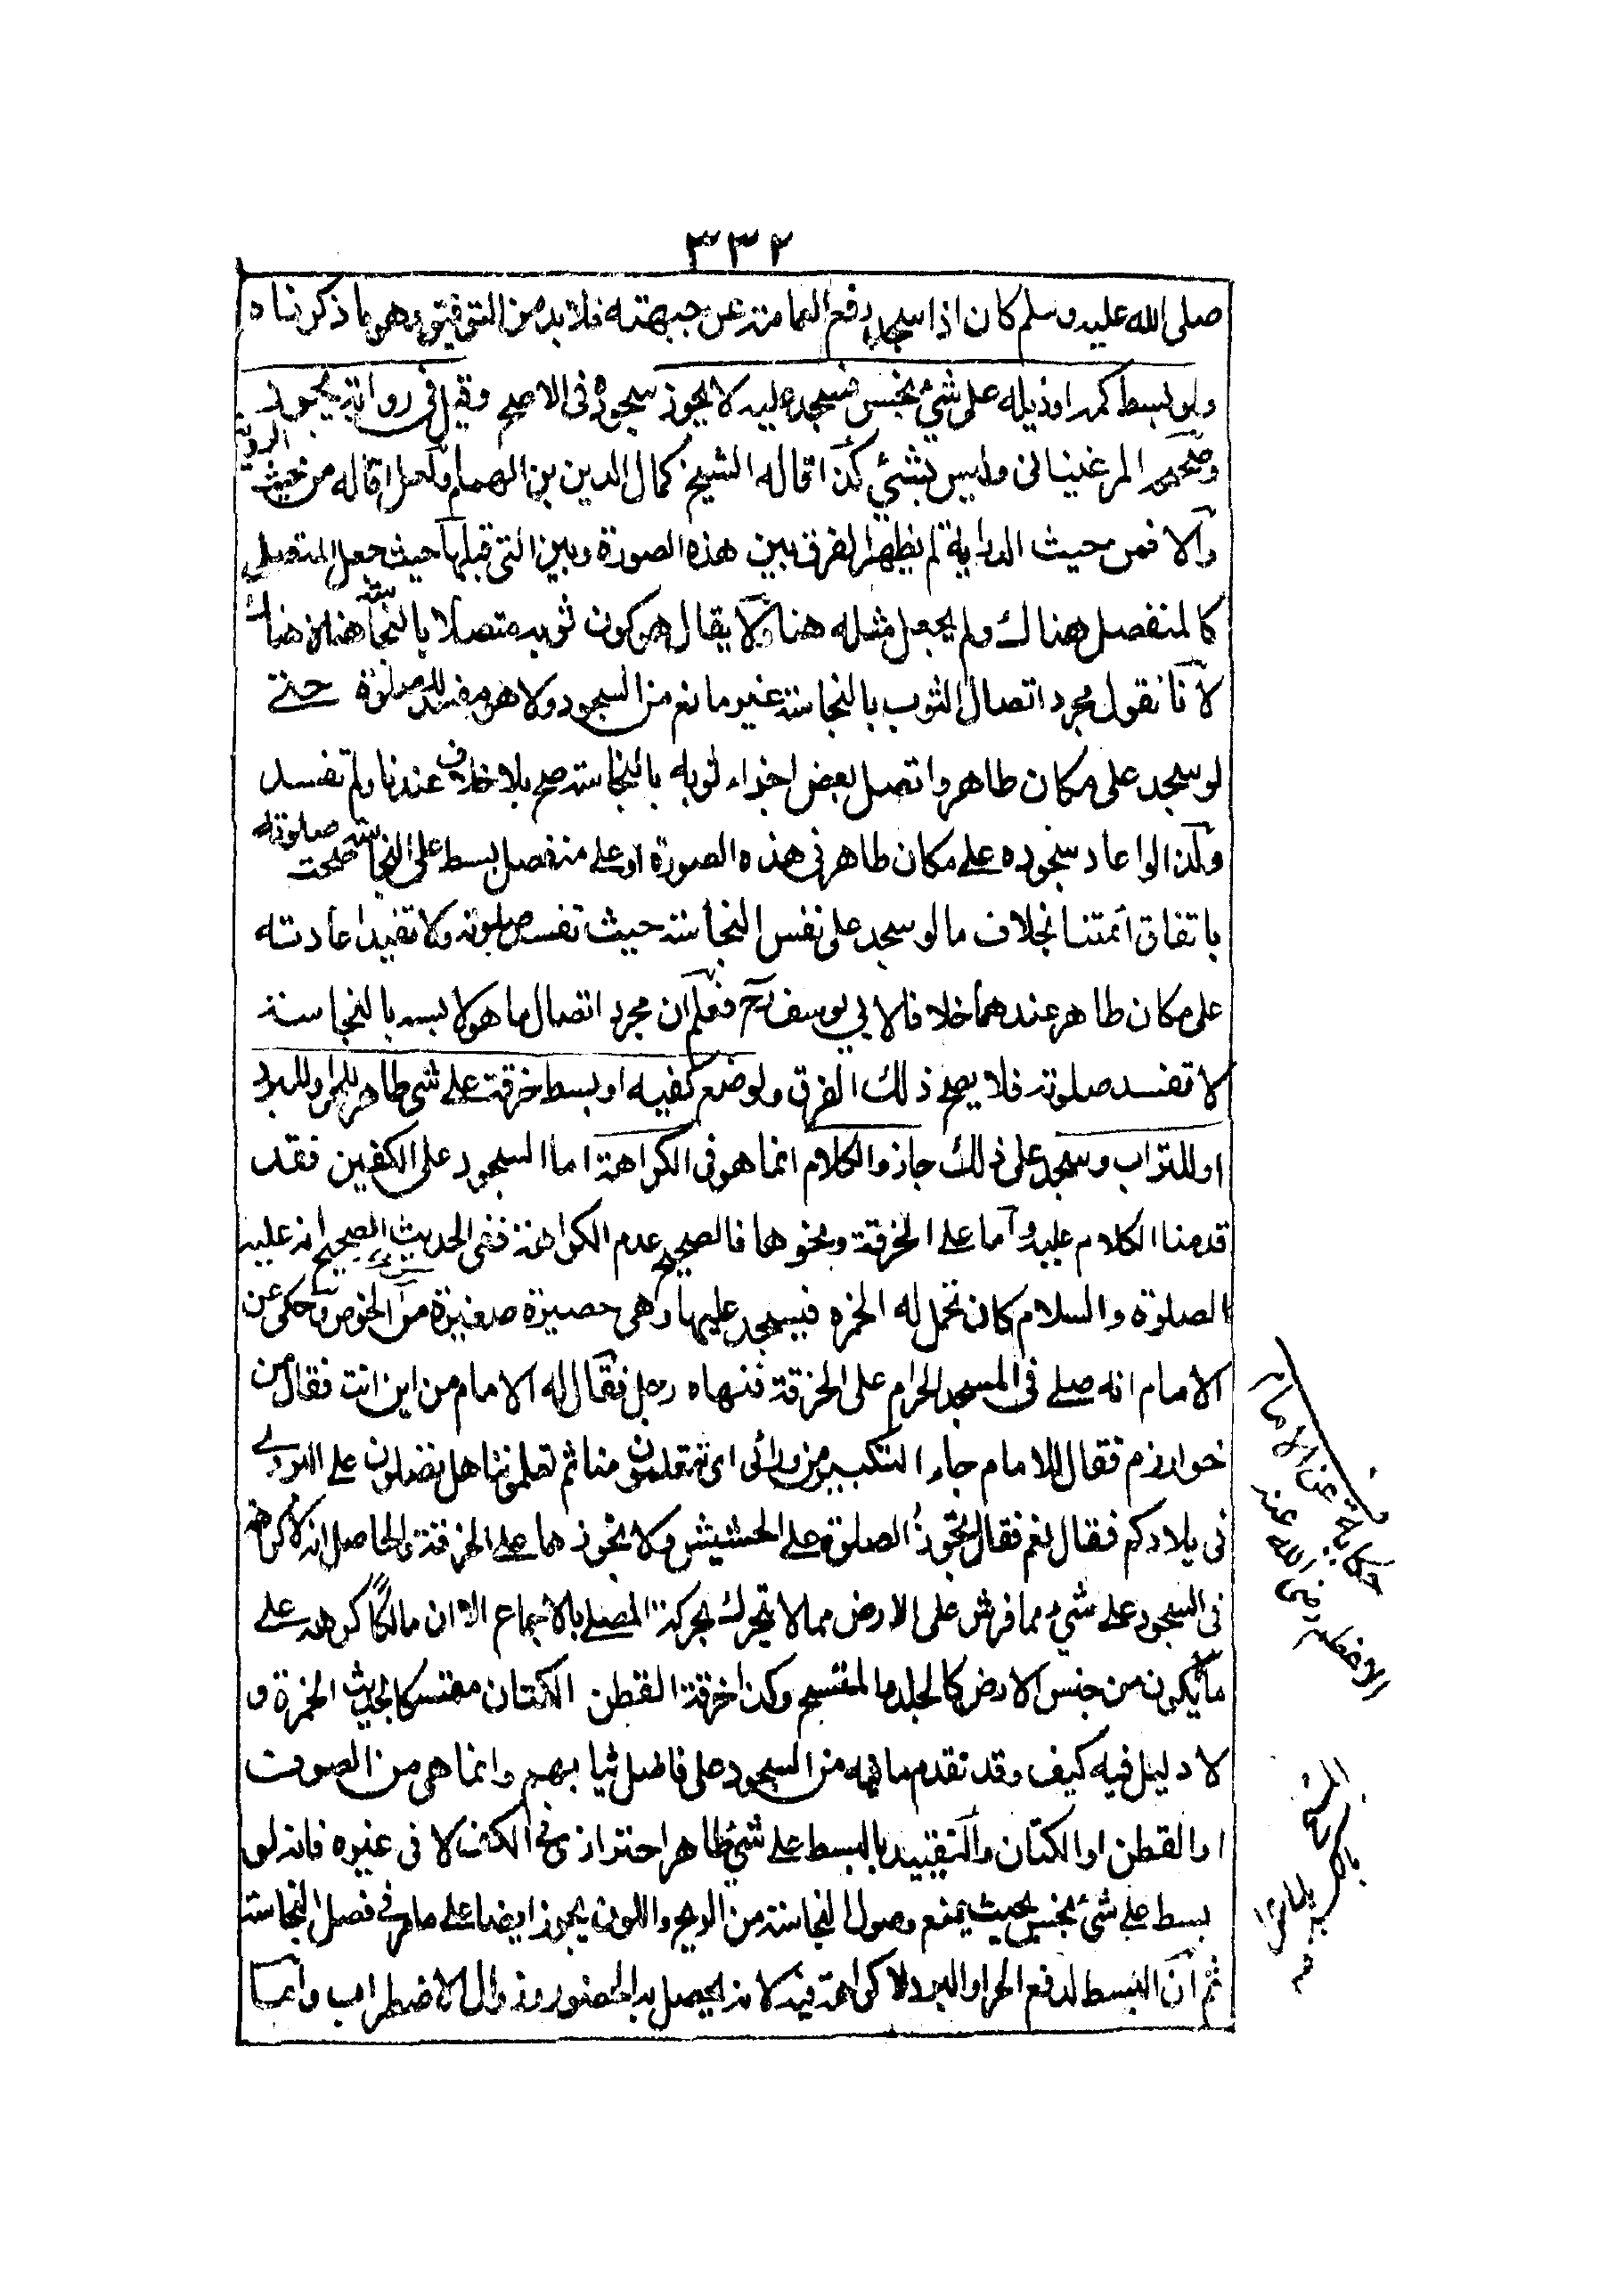 ٣٣٢
صلى الله عليه وسلم كان اذا سجد رفع العمامة عن جبهته فلا بد من التوفيق وهو ما ذكرناه
ولو بسط كمه او ذيله على شيء نجس فسجد عليه لا يجوز سجوده فى الاصح وقيل فى رواية يجوز
وصححه المرغينانى وليس بشئ كذا قاله الشيخ كمال الدين بن الهمام ولعل ما قاله من حيث الرواية
والا فمن حيث الدراية لم يظهر الفرق بين هذه الصورة وبين التى قبلها حيث جعل المتصل
كالمنفصل هناك ولم يجعل مثله هنا ولا يقال هو كون ثوبه متصلا بالنجاسة هنا دون هناك
لانا نقول مجرد اتصال الثوب بالنجاسة غير مانع من السجود ولا هو مفسد للصلوة حتى
لو سجد على مكان طاهر واتصل بعض اجزاء ثوبه بالنجاسة صح بلا خلاف عندنا ولم تفسد
ولذا لو اعاد سجوده على مكان طاهر فى هذه الصورة او على منفصل بسط على النجاسة صحت صلوته
باتفاق ائمتنا بخلاف ما لو سجد على نفس النجاسة حيث تفسد صلوته ولا تفيد اعادته
على مكان طاهر عندهما خلافا لابي يوسف رح فعلم ان مجرد اتصال ما هو لابسه بالنجاسة
لا تفسد صلوته فلا يصح ذلك الفرق ولو وضع كفيه او بسط خرقة على شئ طاهر للحر او للبرد
او للتراب وسجد على ذلك جاز والكلام انما هو فى الكراهة اما السجود على الكفين فقد
قدمنا الكلام عليه واما على الخرقة ونحوها فالصحيح عدم الكراهة ففى الحديث الصحيح انه عليه
الصلوة والسلام كان تحمل له الخمره فيسجد عليها وهى حصيرة صغيرة من الخوص وحكى عن
الامام انه صلى فى المسجد الحرام على الخرقة فنهاه رجل فقال له الامام من اين انت فقال من
خوارزم فقال الامام جاء التكبير من ورائى اى تتعلمون منا ثم تعلموننا هل تصلون على البردى
فى بلادكم فقال نعم فقال تجوز الصلوة على الحشيش ولا تجوزها على الخرقة والحاصل انه لا كراهة
فى السجود على شيء مما فرش على الارض مما لا يتحرك بحركة المصلى بالاجماع الا ان مالكا كرهه على
ما لا يكون من جنس الارض كالجلد والمسح وكذا خرقة القطن الكتان متمسكا بحديث الخمرة و
لا دليل فيه كيف وقد تقدم ما فيه من السجود على فاضل ثيابهم وانما هى من الصوف
او القطن او الكتان والتقييد بالبسط على شيء طاهر احتراز فى الكف لا فى غيره فانه لو
بسط على شئ نجس بحيث يمنع وصول النجاسة من الريح واللون يجوز ايضا على ما مر فى فصل النجاسة
ثم ان البسط لدفع الحر او البرد لا كراهة فيه لانه يحصل به الحضور وزوال الاضطراب وانما
حكاية عن الامام
الاعظم رضى الله عنه